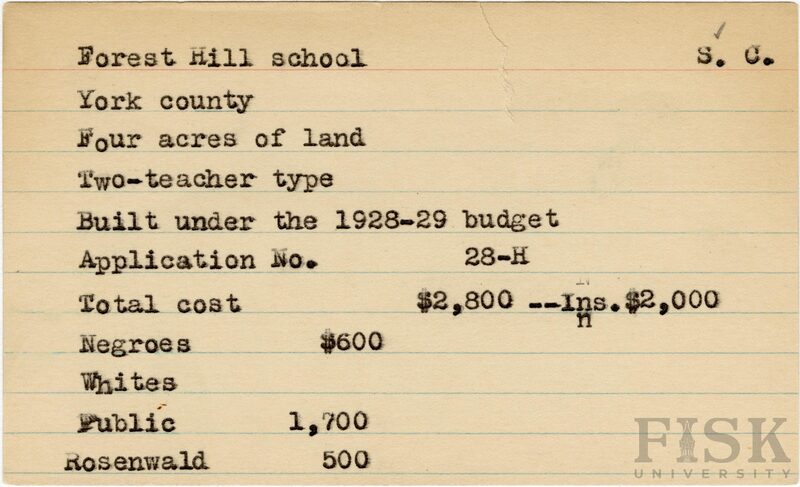 Forest Hill school S. C.
York county
Four acres of land
Two-teacher type
Built under the 1928-29 budget
Application No. 28-H
Total cost $2,800 --Ins. $2,000
Negroes $600
Whites
Public 1,700
Rosenwald 500
FISK
UNIVERSITY